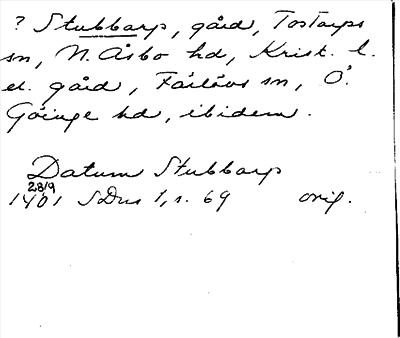 ? Stubbarp, gård, Tostarps
sn, N. Åsbo hd, Krist. l.
el. gård, Färlövs sn, Ö.
Göinge hd, ibidem.
Datum Stubbarp
28/9
1401 SDns 1, s. 69 orig.